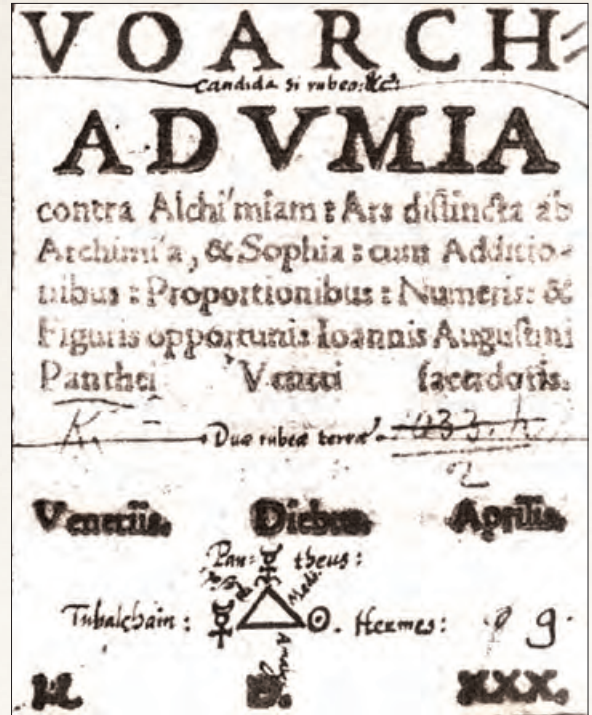 VOARCH
candida si rubeo:
ADVMIA
contra Alchi'miam : Ars distincta ab
Archimi'a, & Sophia : cum Additio-
nibus : Proportionibus : Numeris: &
Figuris opportunis Ioannis Augustini
Panthei Veneti sacerdotis.
K.
Duæ rubeæ terræ. 033. h
2
Venetiis. Diebus. Aprilis.
Pan: theus:
Tubalchain: ☿ ☉. Hermes: 9.
M. D. XXX.